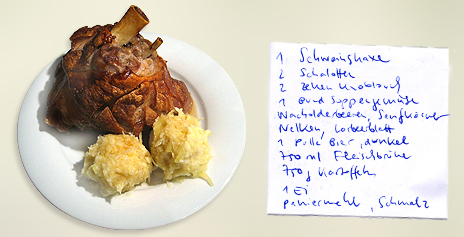 1 Schweinshaxe
2 Schalotten
2 Zehen Knoblauch
1 Bund Suppengemüse
Wacholderbeeren, Senfkörner
Nelken, Lorbeerblatt
1 Pulle Bier, dunkel
750 ml Fleischbrühe
750g Kartoffeln
1 Ei
Paniermehl, Schmalz